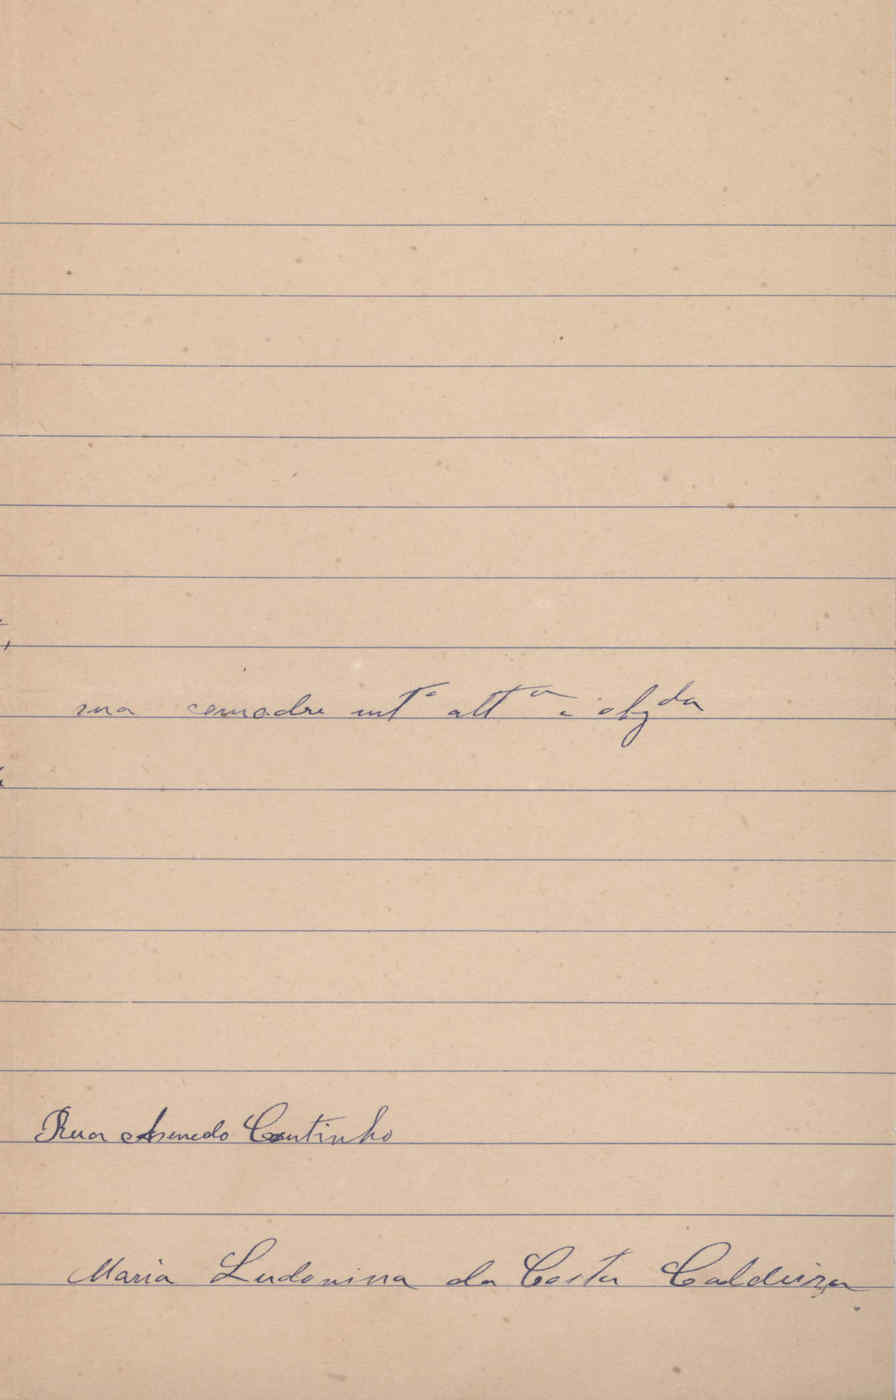 sua comadre mtº attª e obgda
Rua Asevedo Coutinho
Maria Ludovina da Costa Caldeira